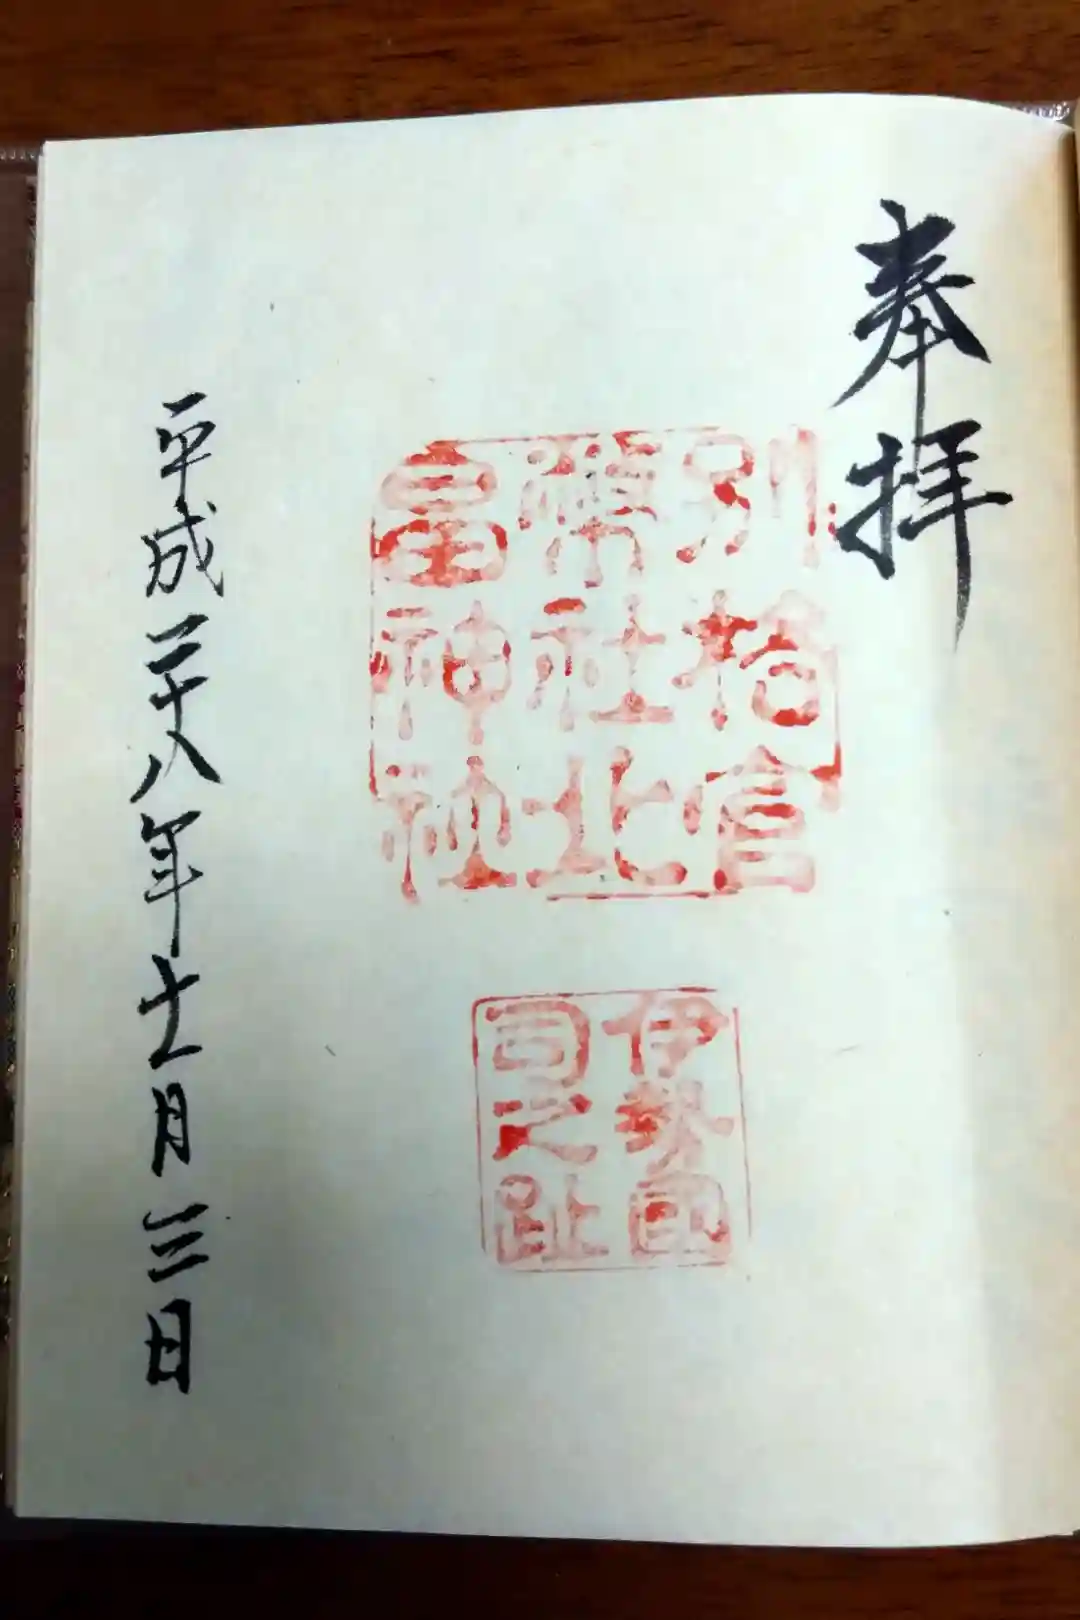 奉拝
別格官
幣社北
畠神社
伊勢國
司之趾
平成二十八年十一月三日